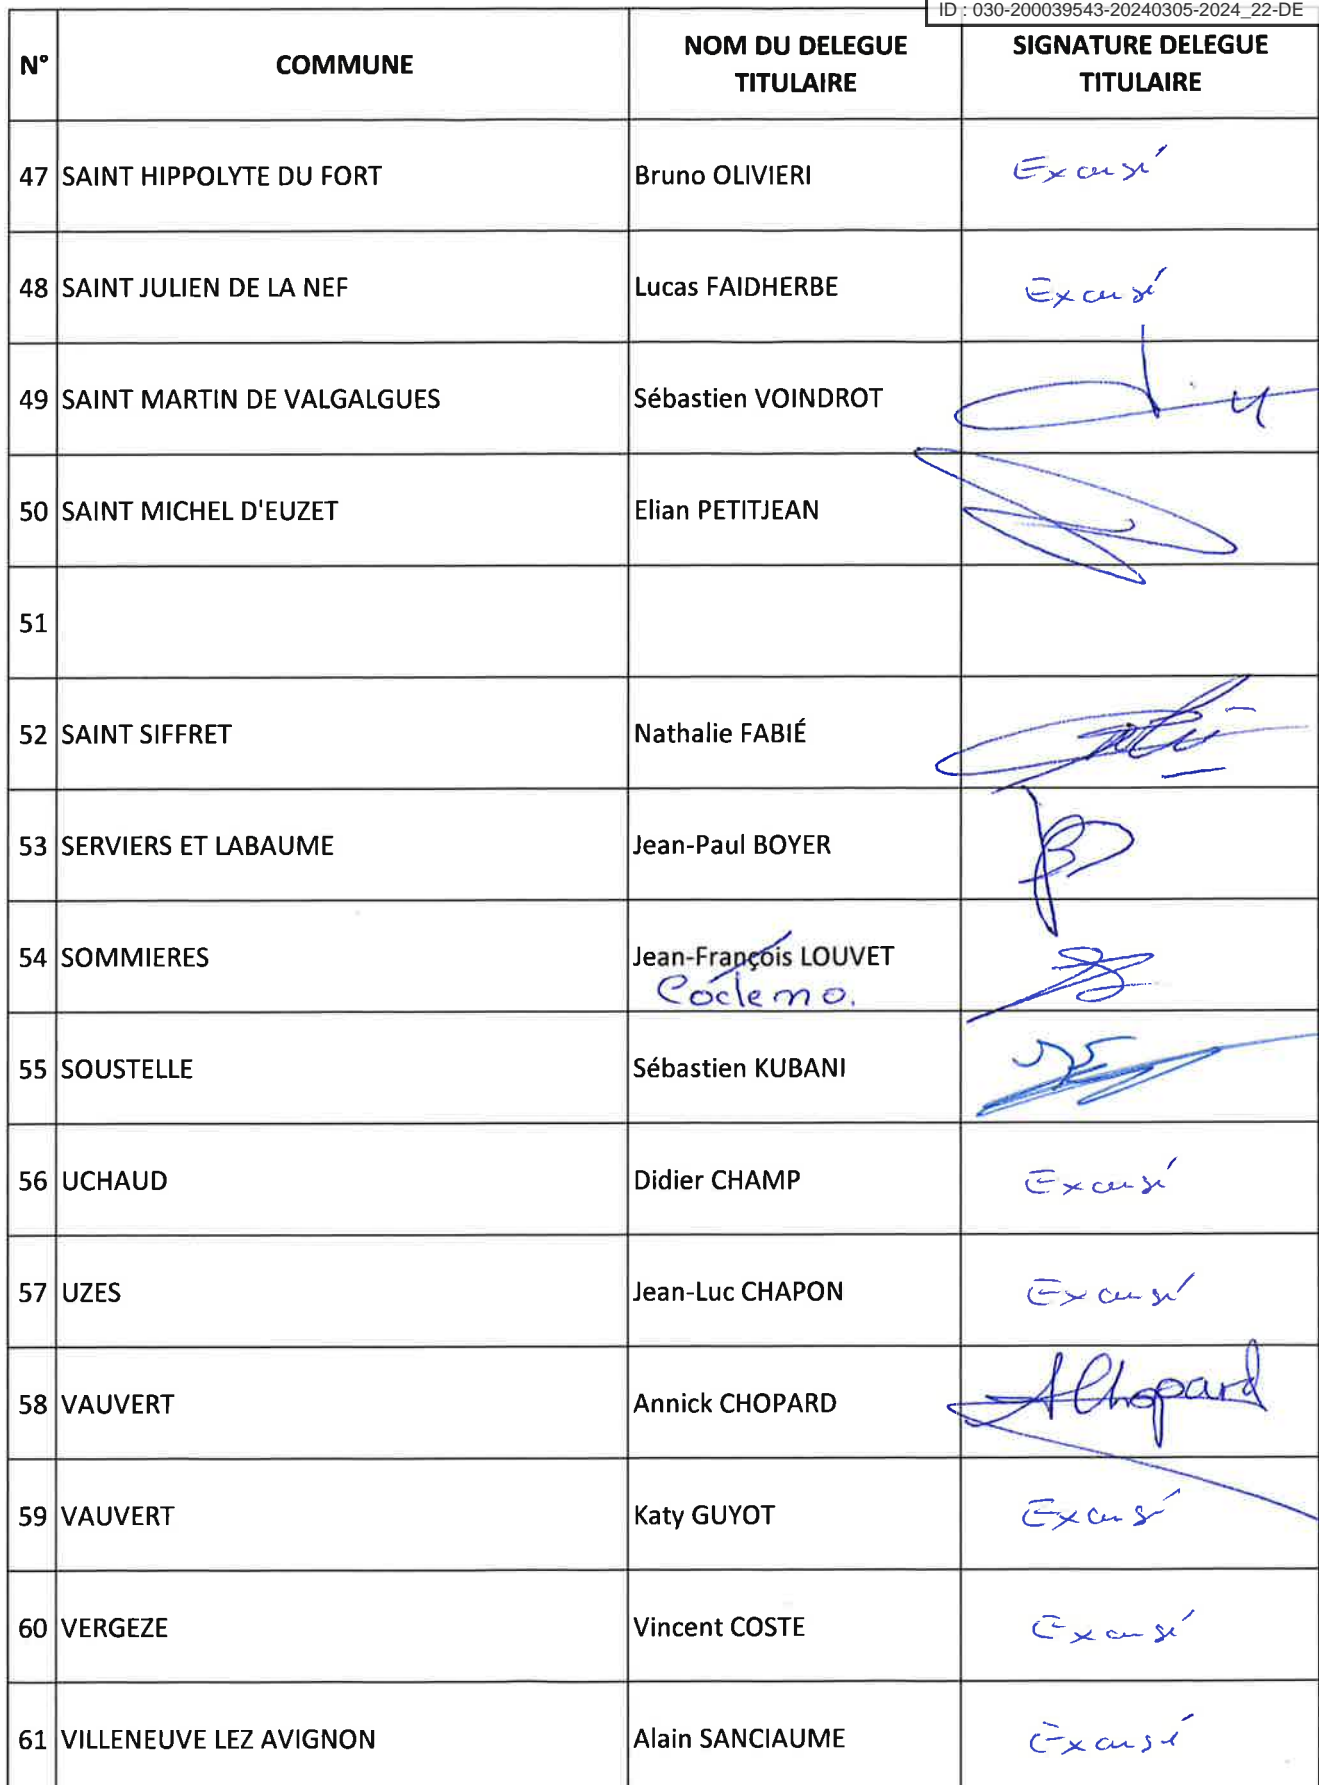 ID : 030-200039543-20240305-2024_22-DE
N° COMMUNE NOM DU DELEGUE TITULAIRE SIGNATURE DELEGUE TITULAIRE
47 SAINT HIPPOLYTE DU FORT Bruno OLIVIERI Excusé
48 SAINT JULIEN DE LA NEF Lucas FAIDHERBE Excusé
49 SAINT MARTIN DE VALGALGUES Sébastien VOINDROT
50 SAINT MICHEL D'EUZET Elian PETITJEAN
51
52 SAINT SIFFRET Nathalie FABIÉ
53 SERVIERS ET LABAUME Jean-Paul BOYER
54 SOMMIERES Jean-François LOUVET
55 SOUSTELLE Sébastien KUBANI
56 UCHAUD Didier CHAMP Excusé
57 UZES Jean-Luc CHAPON Excusé
58 VAUVERT Annick CHOPARD AChopard
59 VAUVERT Katy GUYOT Excusé
60 VERGEZE Vincent COSTE Excusé
61 VILLENEUVE LEZ AVIGNON Alain SANCIAUME Excusé